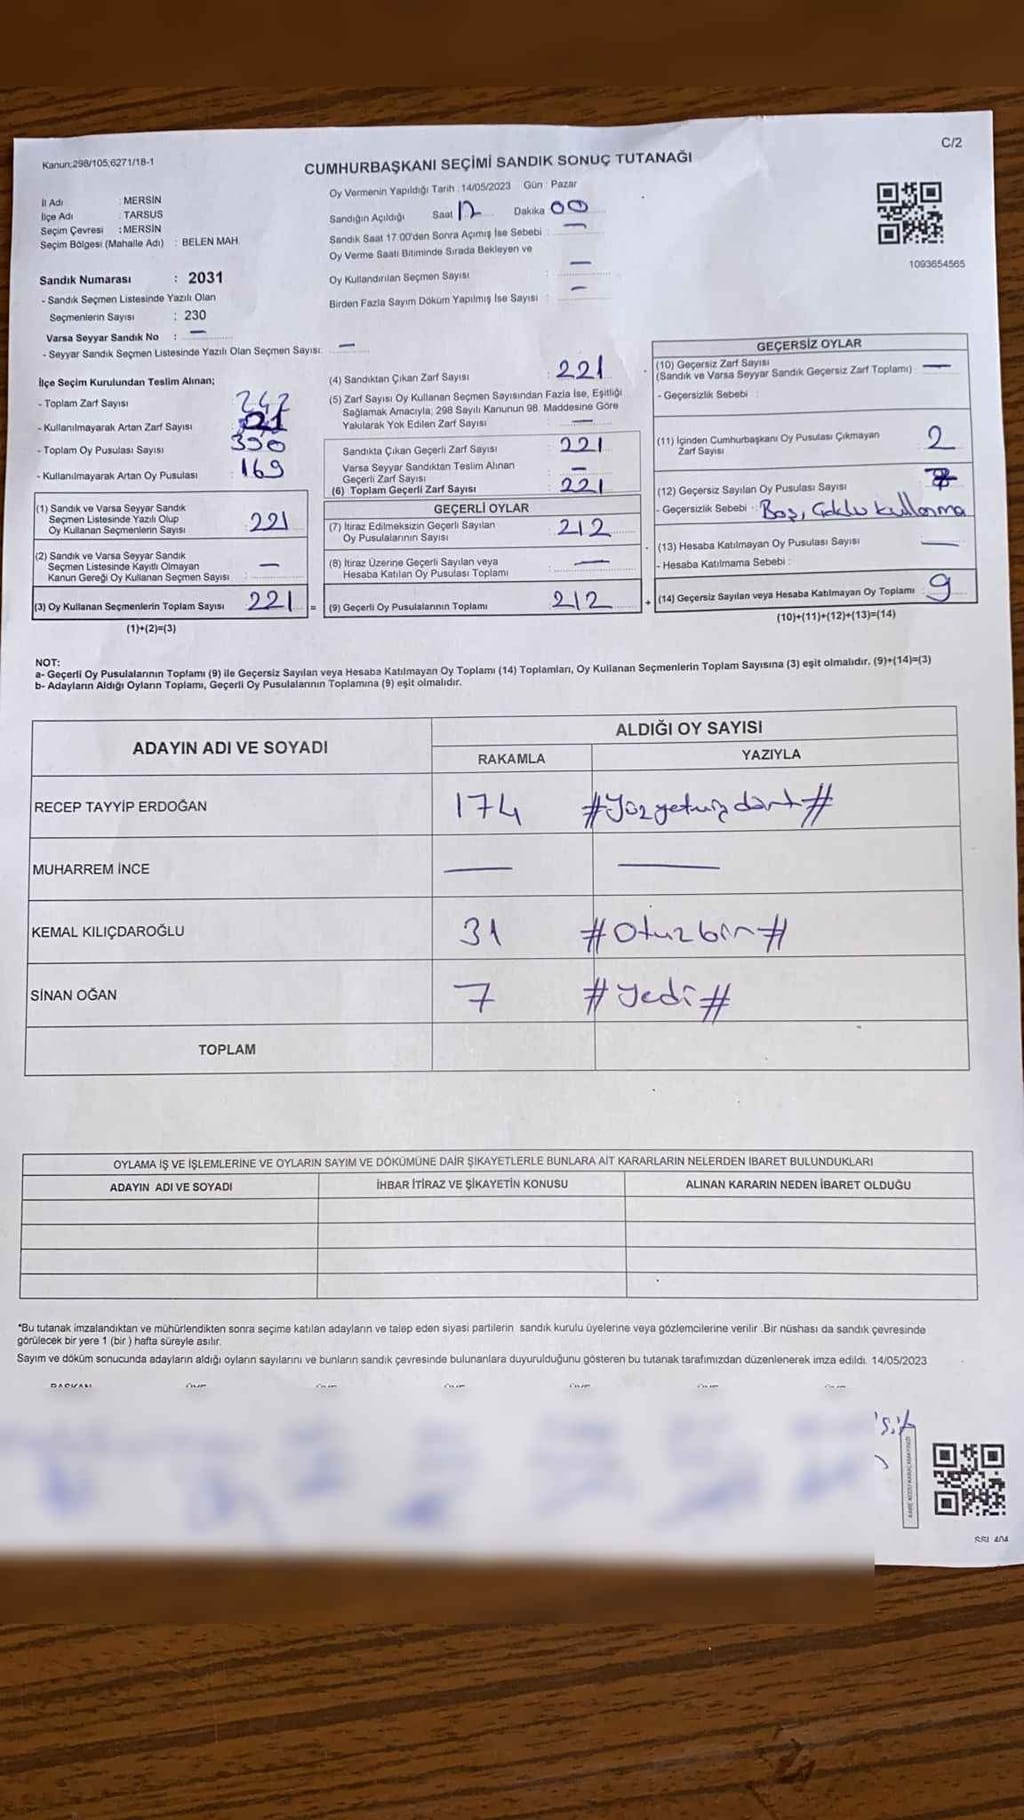 Kanun;298/105;6271/18-1
C/2
CUMHURBAŞKANI SEÇİMİ SANDIK SONUÇ TUTANAĞI
İl Adı : MERSİN
İlçe Adı : TARSUS
Seçim Çevresi : MERSİN
Seçim Bölgesi (Mahalle Adı) : BELEN MAH.
Sandık Numarası : 2031
- Sandık Seçmen Listesinde Yazılı Olan
Seçmenlerin Sayısı : 230
Varsa Seyyar Sandık No : —
- Seyyar Sandık Seçmen Listesinde Yazılı Olan Seçmen Sayısı: —
Oy Vermenin Yapıldığı Tarih : 14/05/2023 Gün : Pazar
Sandığın Açıldığı Saat 17 Dakika 00
Sandık Saat 17.00'den Sonra Açılmış İse Sebebi : —
Oy Verme Saati Bitiminde Sırada Bekleyen ve
Oy Kullandırılan Seçmen Sayısı : —
Birden Fazla Sayım Döküm Yapılmış İse Sayısı : —
1093654565
İlçe Seçim Kurulundan Teslim Alınan;
- Toplam Zarf Sayısı 242
- Kullanılmayarak Artan Zarf Sayısı 21
- Toplam Oy Pusulası Sayısı 390
- Kullanılmayarak Artan Oy Pusulası 169
(1) Sandık ve Varsa Seyyar Sandık
Seçmen Listesinde Yazılı Olup
Oy Kullanan Seçmenlerin Sayısı 221
(2) Sandık ve Varsa Seyyar Sandık
Seçmen Listesinde Kayıtlı Olmayan
Kanun Gereği Oy Kullanan Seçmen Sayısı : —
(3) Oy Kullanan Seçmenlerin Toplam Sayısı 221 =
(1)+(2)=(3)
(4) Sandıktan Çıkan Zarf Sayısı : 221
(5) Zarf Sayısı Oy Kullanan Seçmen Sayısından Fazla İse, Eşitliği
Sağlamak Amacıyla; 298 Sayılı Kanunun 98. Maddesine Göre
Yakılarak Yok Edilen Zarf Sayısı —
Sandıkta Çıkan Geçerli Zarf Sayısı 221
Varsa Seyyar Sandıktan Teslim Alınan
Geçerli Zarf Sayısı —
(6) Toplam Geçerli Zarf Sayısı 221
GEÇERLİ OYLAR
(7) İtiraz Edilmeksizin Geçerli Sayılan
Oy Pusulalarının Sayısı 212
(8) İtiraz Üzerine Geçerli Sayılan veya
Hesaba Katılan Oy Pusulası Toplamı —
(9) Geçerli Oy Pusulalarının Toplamı 212 +
GEÇERSİZ OYLAR
(10) Geçersiz Zarf Sayısı
(Sandık ve Varsa Seyyar Sandık Geçersiz Zarf Toplamı) : —
- Geçersizlik Sebebi :
(11) İçinden Cumhurbaşkanı Oy Pusulası Çıkmayan
Zarf Sayısı 2
(12) Geçersiz Sayılan Oy Pusulası Sayısı 7
- Geçersizlik Sebebi : Boş, Çoklu kullanma
(13) Hesaba Katılmayan Oy Pusulası Sayısı —
- Hesaba Katılmama Sebebi :
(14) Geçersiz Sayılan veya Hesaba Katılmayan Oy Toplamı : 9
(10)+(11)+(12)+(13)=(14)
NOT:
a- Geçerli Oy Pusulalarının Toplamı (9) ile Geçersiz Sayılan veya Hesaba Katılmayan Oy Toplamı (14) Toplamları, Oy Kullanan Seçmenlerin Toplam Sayısına (3) eşit olmalıdır. (9)+(14)=(3)
b- Adayların Aldığı Oyların Toplamı, Geçerli Oy Pusulalarının Toplamına (9) eşit olmalıdır.
ADAYIN ADI VE SOYADI
ALDIĞI OY SAYISI
RAKAMLA YAZIYLA
RECEP TAYYİP ERDOĞAN 174 #Yüzyetmişdört#
MUHARREM İNCE — —
KEMAL KILIÇDAROĞLU 31 #Otuzbir#
SİNAN OĞAN 7 #Yedi#
TOPLAM
OYLAMA İŞ VE İŞLEMLERİNE VE OYLARIN SAYIM VE DÖKÜMÜNE DAİR ŞİKAYETLERLE BUNLARA AİT KARARLARIN NELERDEN İBARET BULUNDUKLARI
ADAYIN ADI VE SOYADI İHBAR İTİRAZ VE ŞİKAYETİN KONUSU ALINAN KARARIN NEDEN İBARET OLDUĞU
*Bu tutanak imzalandıktan ve mühürlendikten sonra seçime katılan adayların ve talep eden siyasi partilerin sandık kurulu üyelerine veya gözlemcilerine verilir .Bir nüshası da sandık çevresinde
görülecek bir yere 1 (bir ) hafta süreyle asılır.
Sayım ve döküm sonucunda adayların aldığı oyların sayılarını ve bunların sandık çevresinde bulunanlara duyurulduğunu gösteren bu tutanak tarafımızdan düzenlenerek imza edildi. 14/05/2023
BAŞKAN